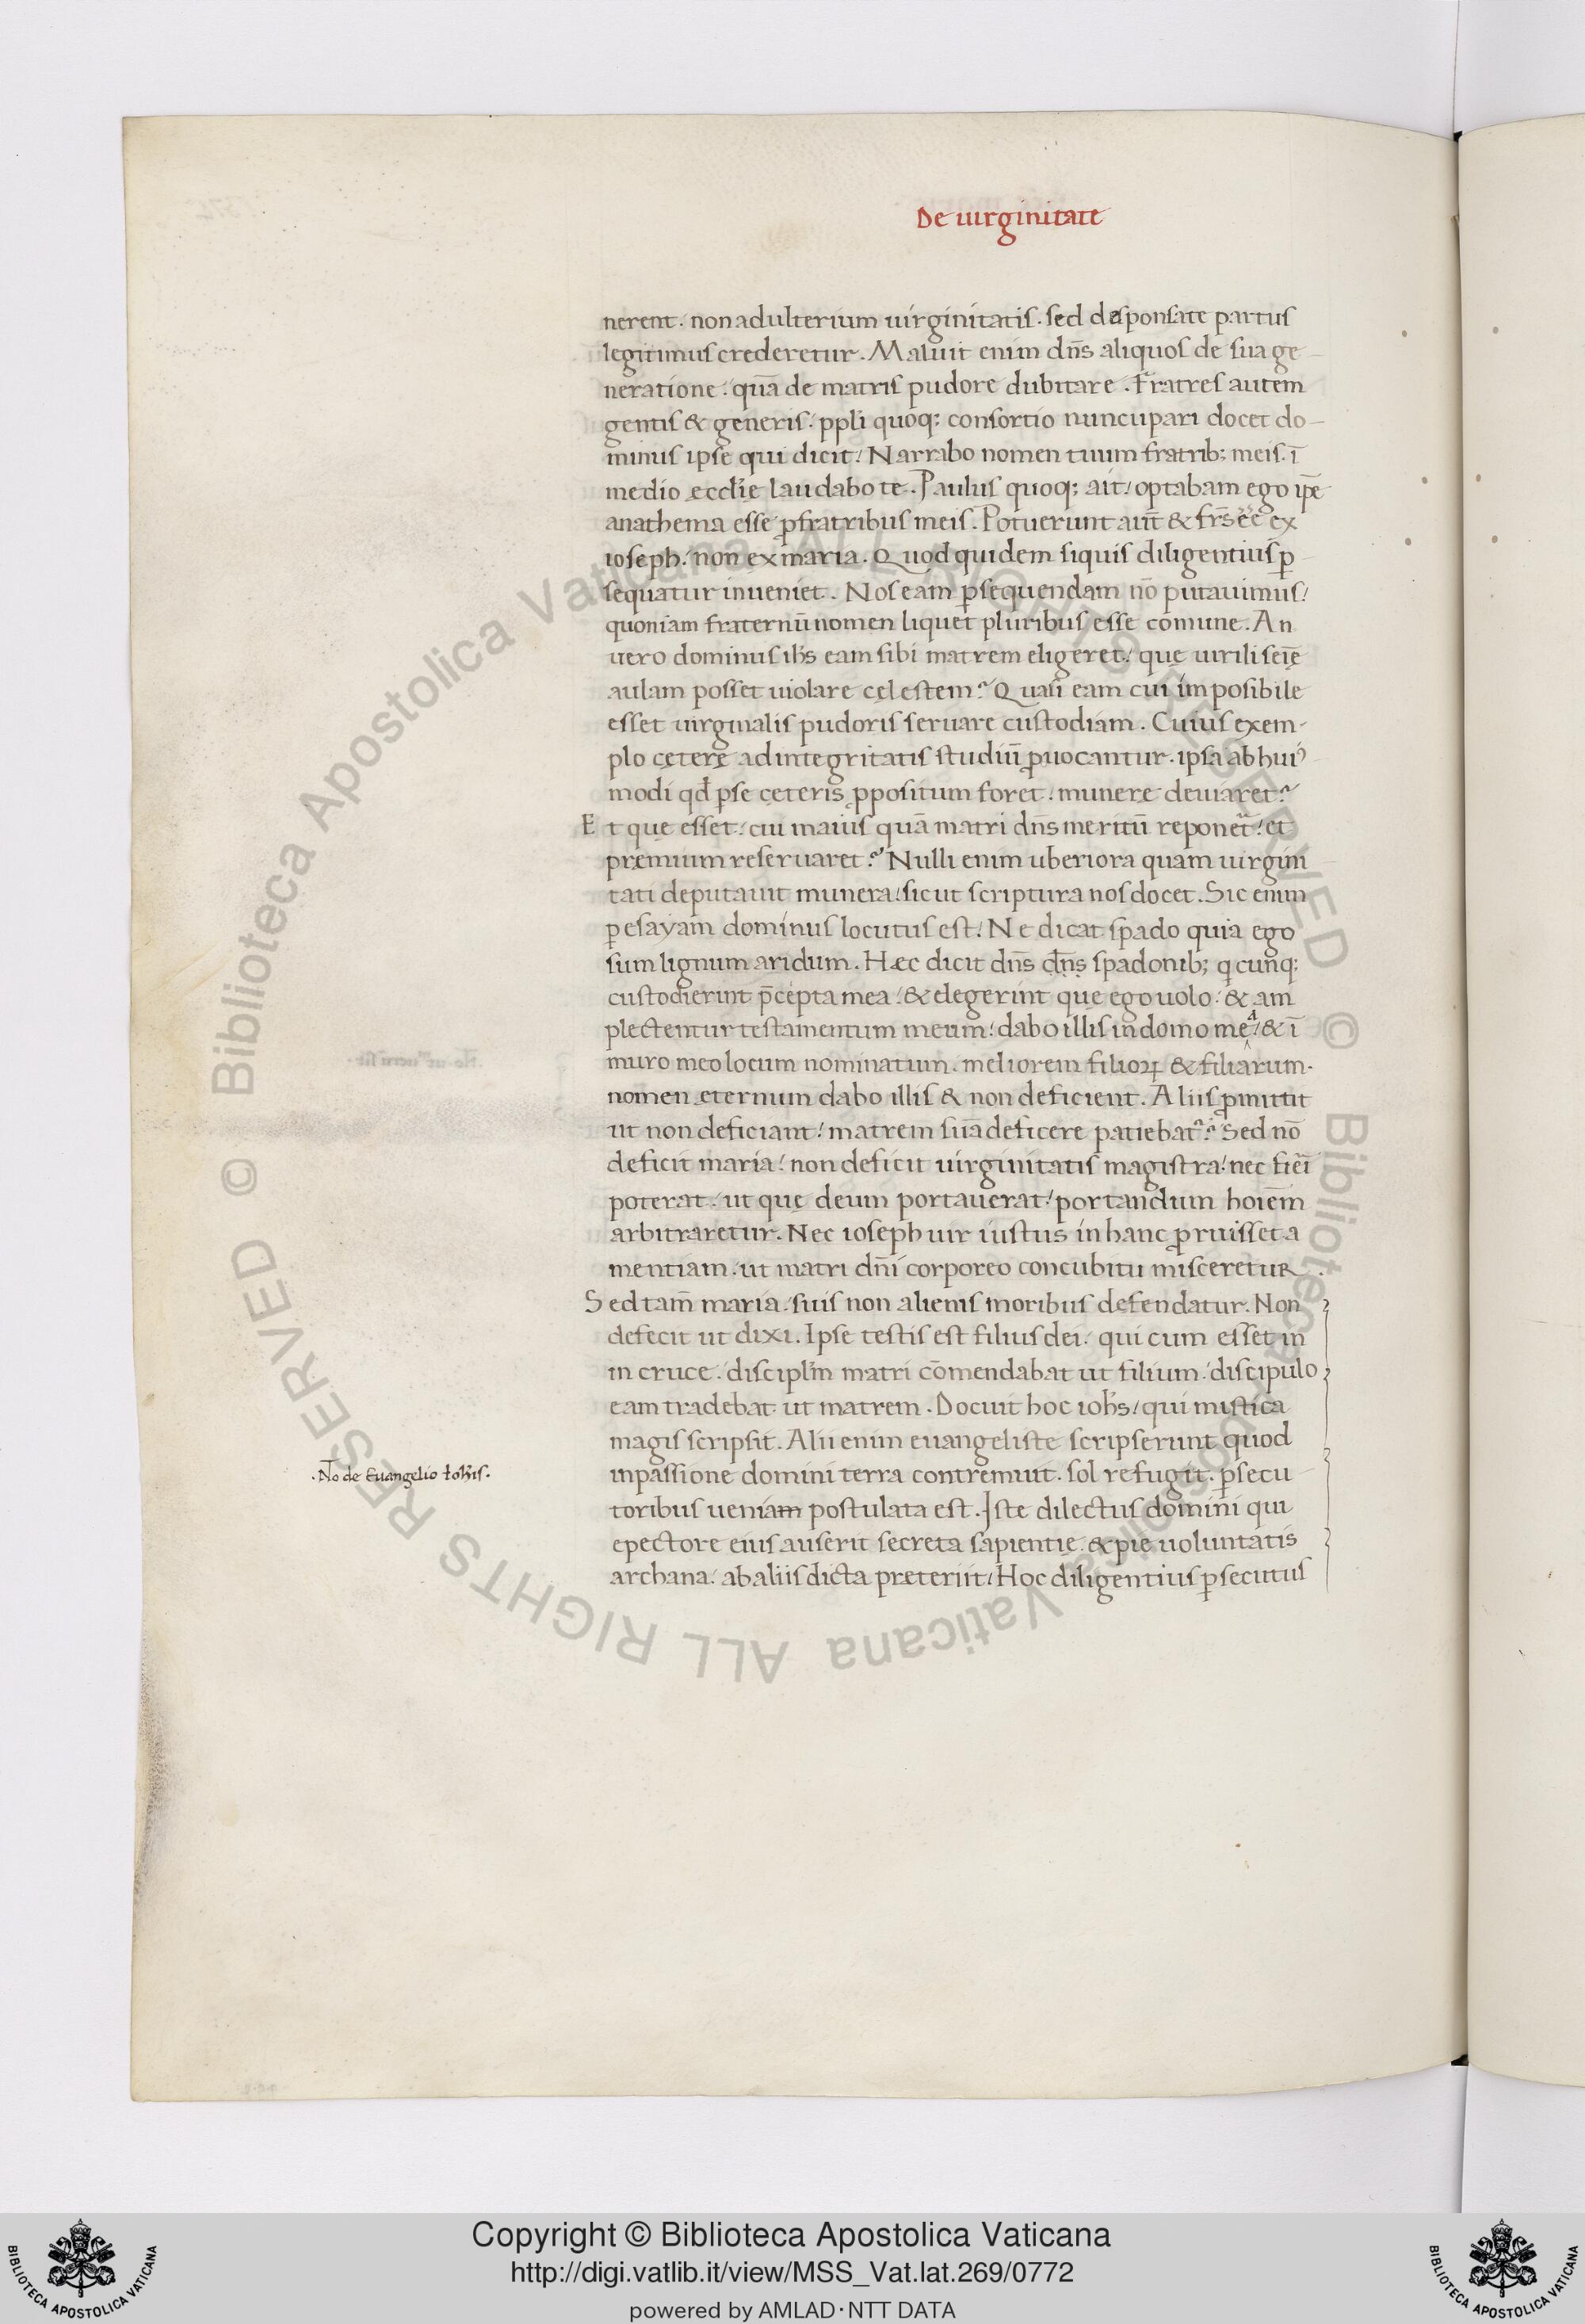 De uirginitate
nerent. non adulterium uirginitatis. sed desponsate partus
legitimus crederetur. Maluit enim dn̄s aliquos de sua ge
neratione. quā de matris pudore dubitare. Fratres autem
gentis & generis. ppli quoq; consortio nuncupari docet do-
minus ipse qui dicit. Narrabo nomen tuum fratrib; meis. ī
medio eccl̄ie laudabo te. Paulus quoq; ait. optabam ego ip̄e
anathema esse ꝓ fratribus meis. Potuerunt aut̄ & fr̄s eē ex
ioseph. non ex maria. Quod quidem siquis diligentius ꝑ
sequatur inueniet. Nos eam ꝑsequendam nō putauimus.
quoniam fraternū nomen liquet pluribus esse cōmune. An
uero dominus ih̄s eam sibi matrem eligeret. que uirili seīe
aulam posset uiolare cęlestem? Quasi eam cui imposibile
esset uirginalis pudoris seruare custodiam. Cuius exem-
plo cętere ad integritatis studiū ꝓuocantur. ipsa ab huiꝰ
modi qd̄ ꝑ se ceteris ꝓpositum foret. munere deuiaret?
Et que esset. cui maius quā matri dn̄s meritū reponet̄. et
premium reseruaret? Nulli enim uberiora quam uirgini
tati deputauit munera. sicut scriptura nos docet. Sic enim
ꝑ esayam dominus locutus est. Ne dicat spado quia ego
sum lignum aridum. Hæc dicit dn̄s dn̄s spadonib; q cunq;
custodierint p̄cepta mea. & elegerint que ego uolo. & am
plectentur testamentum meum. dabo illis in domo mea. & ī
muro meo locum nominatum. meliorem filioꝝ & filiarum.
nomen eternum dabo illis & non deficient. Aliis ꝓmittit
ut non deficiant. matrem suā deficere patiebat̄? Sed nō
deficit maria. non deficit uirginitatis magistra. nec fiēi
poterat. ut que deum portauerat. portandum hoīem
arbitraretur. Nec ioseph uir iustus in hanc ꝓruisset a
mentiam. ut matri dn̄i corporeo concubitu misceretur.
Sed tam̄ maria. suis non alienis moribus defendatur. Non
defecit ut dixi. Ipse testis est filius dei. qui cum esset in
in cruce. discipl̄m matri cōmendabat ut filium. discipulo
eam tradebat ut matrem. Docuit hoc ioh̄s. qui mistica
magis scripsit. Alii enim euangeliste scripserunt quod
in passione domini terra contremuit. sol refugit. ꝑsecu
.No de Euangelio Ioh̄is.
toribus ueniam postulata est. Iste dilectus domini qui
e pectore eius auserit secreta sapientię. & pie uoluntatis
archana. ab aliis dicta preteriit. Hoc diligentius ꝑsecutus
Copyright © Biblioteca Apostolica Vaticana
http://digi.vatlib.it/view/MSS_Vat.lat.269/0772
powered by AMLAD·NTT DATA
BIBLIOTECA APOSTOLICA VATICANA
BIBLIOTECA APOSTOLICA VATICANA
© Biblioteca Apostolica Vaticana ALL RIGHTS RESERVED © Biblioteca Apostolica Vaticana ALL RIGHTS RESERVED